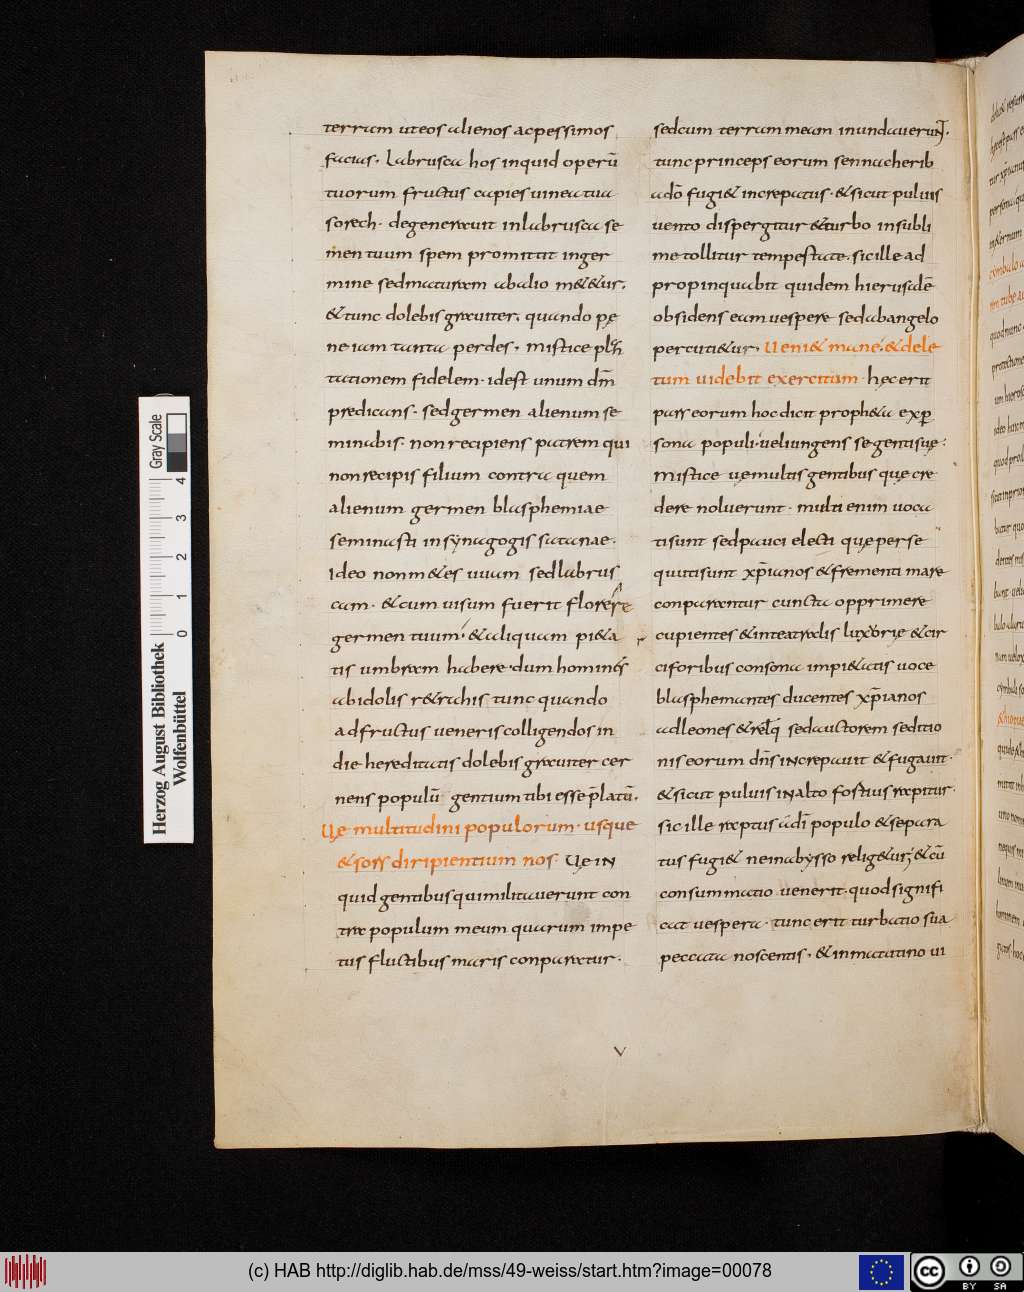 terram uteos alienos acpessimos
facias. labrusca hos inquid operū
tuorum fructus capies uinea tua
sorech. degenerauit inlabrusca se
men tuum spem promittit inger
mine sedmaturam abalio m&&ur.
&tunc dolebis grauiter. quando pę
ne iam tanta perdes. mistice
tationem fidelem. idest unum dm̄
predicans. sedgermen alienum se
minabis. non recipiens patrem qui
nonrecipis filium contra quem
alienum germen blasphemiae
seminasti insynagogis satanae.
Ideo nonm&es uuam sedlabrus
cam. &cum uisum fuerit florere
germen tuum. &aliquam pi&a
tis umbram habere. dum homines
abidolis r&rahis tunc quando
adfructus ueneris colligendos in
die hereditatis dolebis grauiter cer
nens populū gentium tibi esse p̄latū.
Uę multitudini populorum. usque
&sors diripientium nos. Uę in
quid gentibus qui militauerunt con
tra populum meum quarum impe
tus fluctibus maris conparatur.
sedcum terram meam inundauerunt.
tunc princeps eorum sennacherib
ado fugi& increpatus. &sicut puluis
uento dispergitur &turbo insubli
me tollitur tempestate. sic ille ad
propinquabit quidem hierusalē
obsidens eam uespere sedabangelo
percuti&ur. Ueni& mane. &dele
tum uidebit exercitum. hęc erit
pars eorum hoc dicit proph&a exp
sona populi. ueliungens se gentisuę:
Mistice uęmultis gentibus quę cre
dere noluerunt. multi enim uoca
ti sunt sedpauci electi quęperse
quuti sunt xp̄ianos &frementi mare
conparantur cuncta opprimere
cupientes &inteatralis luxorię &cir
ciforibus consona impi&atis uoce
blasphemantes ducentes xp̄ianos
adleones &relq̄ sedauctorem seditio
nis eorum dn̄s increpauit &fugauit.
&sicut puluis in alto fostius rapitur.
sic ille raptus adi populo &sepera
tus fugi& ne inabysso relig&ur; &cū
consummatio uenerit. quod signifi
cat uespera. tunc erit turbatio sua
peccata noscentis. &inmatutino ui
V
Herzog August Bibliothek
Wolfenbüttel
Gray Scale
0 1 2 3 4
(c) HAB http://diglib.hab.de/mss/49-weiss/start.htm?image=00078
cc BY SA